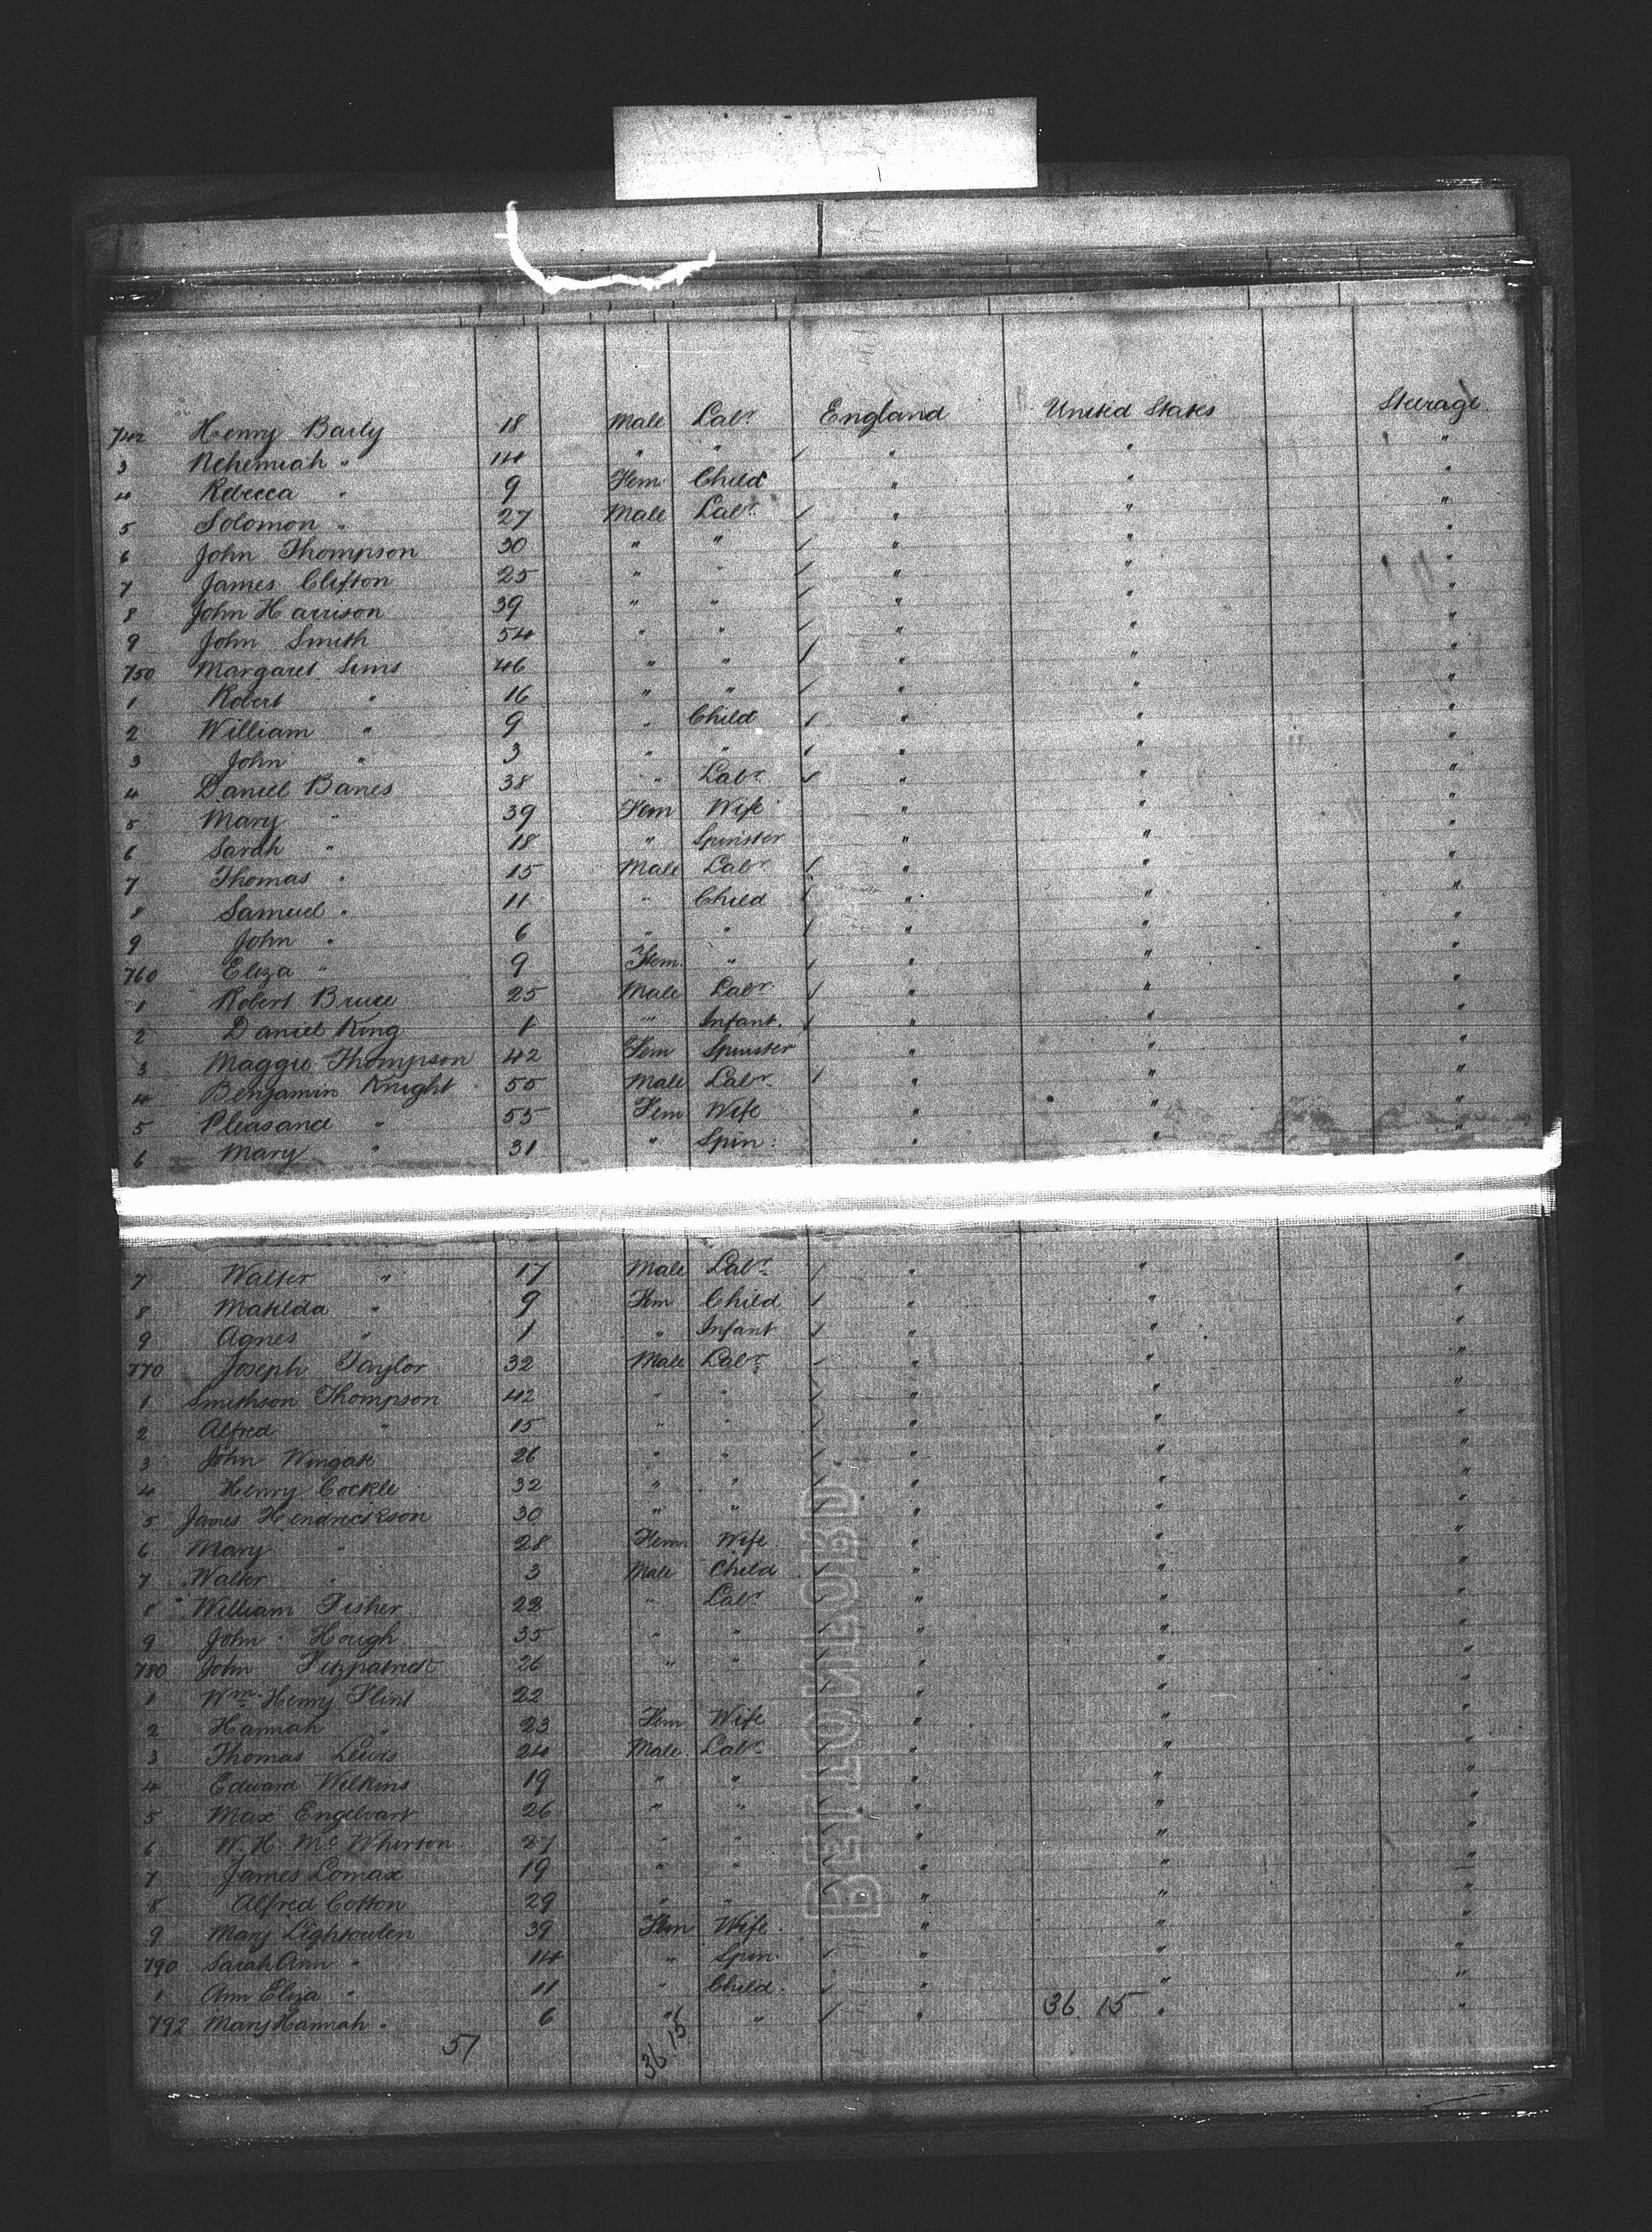 742 Henry Barly 18 Male Labr. England United States Steerage
3 Nehemiah " 14 " " " " "
4 Rebecca " 9 Fem. Child " " "
5 Solomon " 27 Male Labr. " " "
6 John Thompson 30 " " " " "
7 James Clifton 25 " " " " "
8 John Harrison 39 " " " " "
9 John Smith 54 " " " " "
750 Margaret Sims 46 " " " " "
1 Robert " 16 " " " " "
2 William " 9 " Child " " "
3 John " 3 " " " " "
4 Daniel Banes 38 " Labr. " " "
5 Mary " 39 Fem Wife " " "
6 Sarah " 18 " Spinster " " "
7 Thomas " 15 Male Labr. " " "
8 Samuel " 11 " Child " " "
9 John " 6 " " " " "
760 Eliza " 9 Fem. " " " "
1 Robert Bruce 25 Male Labr. " " "
2 Daniel King 1 " Infant. " " "
3 Maggie Thompson 42 Fem Spinster " " "
4 Benjamin Knight 55 Male Labr. " " "
5 Pleasance " 55 Fem Wife " " "
6 Mary " 31 " Spin: " " "
7 Walter " 17 Male Labr. " " "
8 Matilda " 9 Fem Child " " "
9 Agnes " 1 " Infant " " "
770 Joseph Taylor 32 Male Labr. " " "
1 Smithson Thompson 42 " " " " "
2 Alfred " 15 " " " " "
3 John Wingate 26 " " " " "
4 Henry Cockle 32 " " " " "
5 James Hendrickson 30 " " " " "
6 Mary " 28 Fem. Wife " " "
7 Walter " 3 Male Child " " "
8 William Fisher 22 " Labr. " " "
9 John Hough 35 " " " " "
780 John Fitzpatrick 26 " " " " "
1 Wm. Henry Flint 22 " " "
2 Hannah " 23 Fem Wife " " "
3 Thomas Lewis 24 Male. Labr. " " "
4 Edward Wilkins 19 " " " " "
5 Max Engelvart 26 " " " " "
6 W. H. Mc Wherton 27 " " " " "
7 James Lomax 19 " " " " "
8 Alfred Cotton 29 " " " " "
9 Mary Lightowlen 39 Fem Wife. " " "
790 Sarah Ann " 14 " Spin. " " "
1 Ann Eliza " 11 " Child. " " "
792 Mary Hannah " 6 " " " 36 15 " "
51 36.15
BETTONFORD